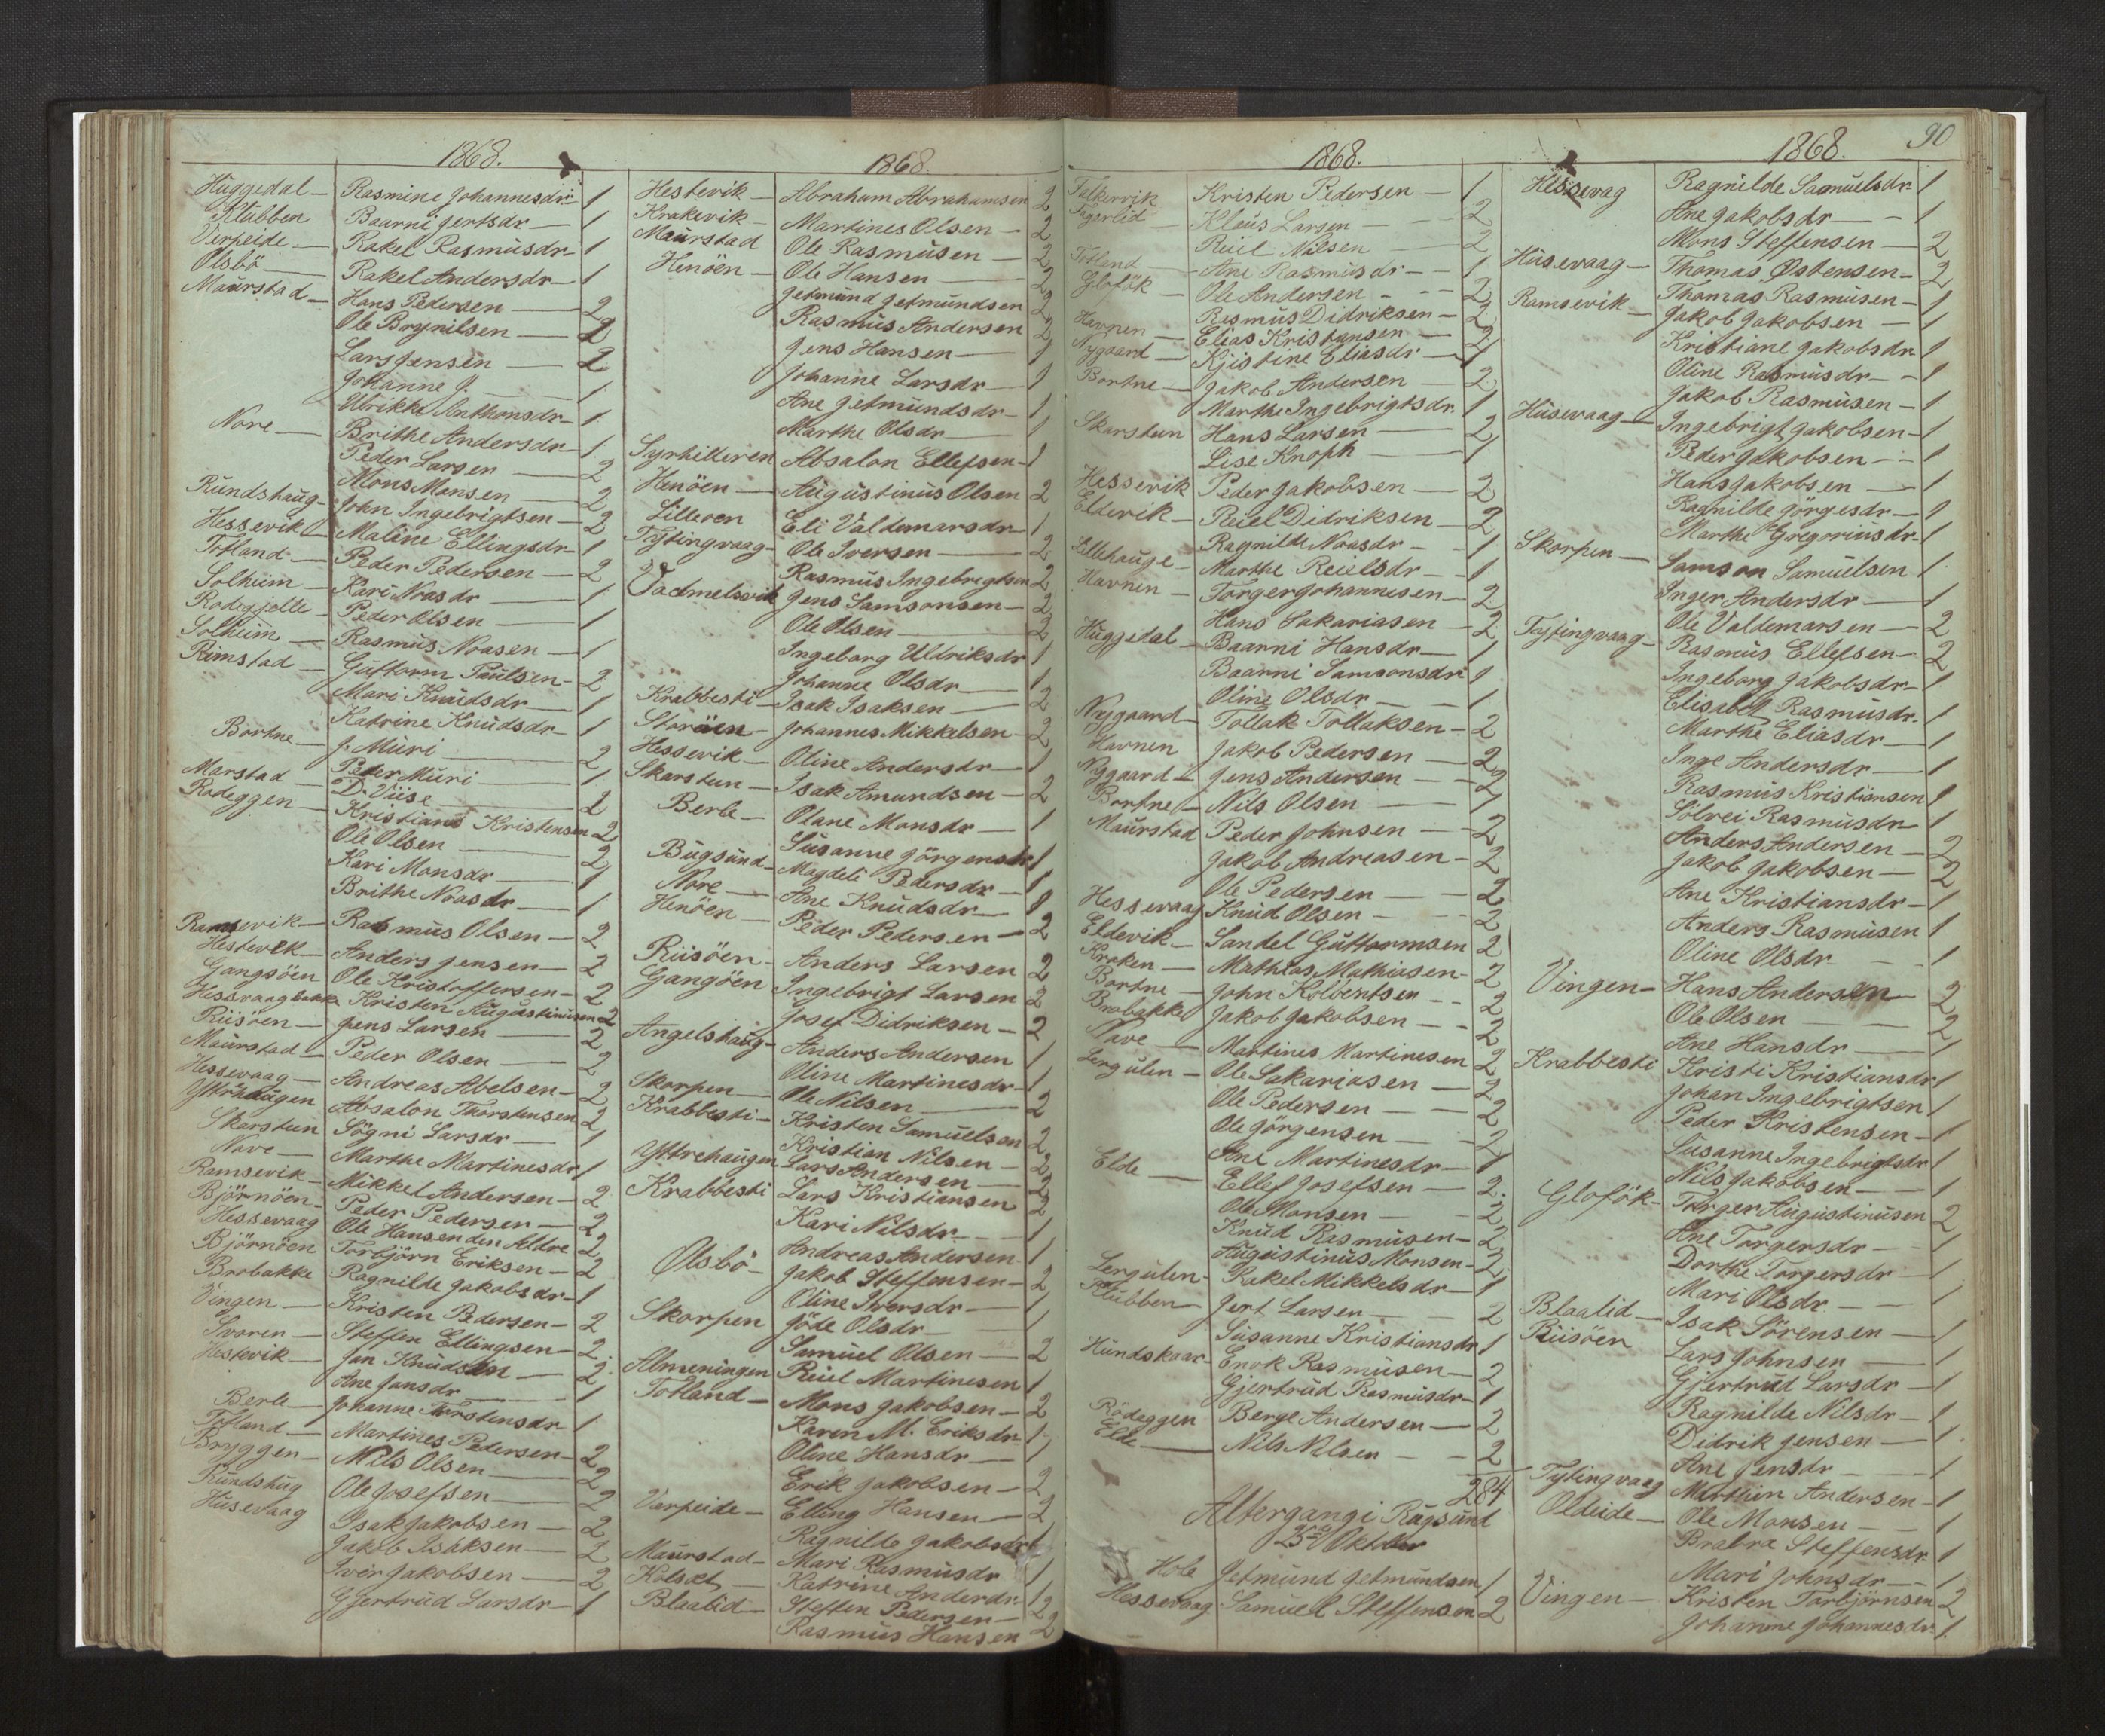 1868.
Huggedal — Rasmine Johannesdr — 1
Klubben Baarni Gertsdr — 1
Verpeide — Rakel Rasmusdr — 1
Olsbö — Rakel Andersdr — 1
Maurstad — Hans Pedersen — 2
Ole Brynilsen — 2
Lars Jensen — 2
Johanne J. — 1
Ulrikke Anthonsdr — 1
Nore — Brithe Andersdr — 1
Peder Larsen — 2
Mons Monsen — 2
Rundshaug — John Ingebrigtsen — 2
Hessevik Maline Ellingsdr — 1
Totland — Peder Pedersen — 2
Solheim — Kari Noasdr — 1
Rodegjelle — Peder Olsen — 1
Solheim — Rasmus Noasen — 1
Rimstad — Guttorm Paulsen — 2
Mari Knudsdr — 1
Katrine Knudsdr — 1
Bortne — J. Muri — 2
Peder Muri — 1
Marstad — D. Viise — 2
Rodeggen — Kristian Kristensen 2
Ole Olsen — 2
Kari Monsdr — 1
Brithe Noasdr — 1
Ramsevik — Rasmus Olsen — 2
Hestevek — Anders Jensen — 2
Gangsöen Ole Kristoffersen — 2
Hessvaagbakke Kristen Augustinusen 2
Riisöen — Jens Larsen — 2
Maurstad — Peder Olsen — 2
Hessevaag — Andreas Abelsen — 2
Yttrehaugen Absalon Thorstensen 2
Skarstun Sögni Larsdr — 1
Nave — Marthe Martinesdr 1
Ramsevik — Mikkel Andersen — 2
Björnöen — Peder Pedersen — 2
Hessevaag Ole Hansen den Aldre 2
Björnöen Torbjörn Eriksen — 2
Brobakke Ragnilde Jakobsdr — 1
Vingen — Kristen Pedersen — 2
Svoren — Steffen Ellingsen — 2
Hestevik — Jan Knudsen — 2
Ane Jansdr — 1
Berle — Johanne Torstensdr 1
Totland — Martines Pedersen — 2
Bryggen — Nils Olsen — 2
Rundshug Ole Josefsen — 2
Husevaag Isak Jakobsen — 2
Jakob Isaksen — 2
Iver Jakobsen — 2
Gjertrud Larsdr — 1
1868.
Hestevik — Abraham Abrahamsen 2
Krakevik — Martines Olsen — 2
Maurstad Ole Rasmusen — 2
Henöen — Ole Hansen — 2
Getmund Getmundsen 2
Rasmus Andersen 2
Jens Hansen — 1
Johanne Larsdr — 1
Ane Getmundsdr — 1
Marthe Olsdr — 1
Syrhilleren Absalon Ellefsen — 1
Henöen — Augustinus Olsen 2
Lilleöen Eli Valdemarsdr — 1
Tytingvaag — Ole Iversen — 2
Rasmus Ingebrigtsen 2
Vadmelsvik Jens Samsonsen — 2
Ole Olsen — 2
Ingeborg Uldriksdr 1
Johanne Olsdr — 1
Krabbesti — Isak Isaksen — 2
Storöen — Johannes Mikkelsen — 2
Hessevik — Oline Andersdr — 1
Skarstun — Isak Amundsen — 2
Berle — Olane Monsdr — 1
Susanne Jörgensdr 1
Bugsund — Magdeli Pedersdr — 1
Nore — Ane Knudsdr — 1
Henöen — Peder Pedersen — 2
Riisöen — Anders Larsen 2
Gangöen Ingebrigt Larsen 2
Josef Didriksen — 2
Angelshaug — Anders Andersen 1
Oline Martinesdr — 1
Skorpen — Ole Nilsen — 2
Krabbesti — Kristen Samuelsen 2
Kristian Nilsen — 2
Yttrehaugen Lars Andersen — 2
Krabbesti Lars Kristiansen 2
Kari Nilsdr — 1
Andreas Andersen 1
Olsbö — Jakob Steffensen — 2
Oline Iversdr — 1
Skorpen Jöde Olsdr — 1
Samuel Olsen — 2
Almeningen Reiel Martinesen 1
Totland — Mons Jakobsen — 2
Karen M. Eriksdr — 1
Oline Hansdr — 1
Erik Jakobsen — 2
Varpeide — Elling Hansen — 2
Ragnilde Jakobsdr 1
Maurstad — Mari Rasmusdr 1
Kolset — Katrine Andersdr 1
Blaalid — Steffen Pedersen — 2
Rasmus Hansen 2
1868.
Falkevik Kristen Pedersen — 1
Fagerlid — Klaus Larsen — 2
Reiel Nilsen 2
Totland — Ane Rasmusdr — 1
Glofök — Ole Andersen — 2
Rasmus Didriksen — 2
Havnen — Elias Kristansen — 2
Nygaard — Kjistine Eliasdr — 1
Bortne — Jakob Andersen — 2
Marthe Ingebrigtsdr 1
Skarstun Hans Larsen — 2
Lise Knoph — 1
Hessevik Peder Jakobsen — 2
Eldevik — Reiel Didriksen — 2
Ragnilde Noasdr — 1
Lillehauge — Marthe Reielsdr — 1
Havnen — Torger Johannesen — 2
Hans Sakariasen — 2
Huggedal — Baarni Hansdr — 1
Baarni Samsonsdr 1
Oline Olsdr — 1
Nygaard — Tollak Tollaksen — 2
Havnen Jakob Pedersen — 2
Nygaard — Jens Andersen — 2
Bortne — Nils Olsen — 1
Maurstad Peder Johnsen — 2
Jakob Andreasen — 2
Ole Pedersen — 2
Hessevaag Knud Olsen — 2
Eldevik — Sandel Guttormsen 2
Kroken — Mathias Mathiasen — 2
Bortne — John Kolbentsen — 2
Brobakke Jakob Jakobsen — 2
Nave — Martines Martinesen 2
Lergulen — Ole Sakariasen — 2
Ole Pedersen — 2
Ole Görgensen — 2
Ane Martinesdr — 1
Elde — Ellef Josefsen — 2
Ole Monsen — 2
Knud Rasmusen — 2
Augustinus Monsen — 2
Lergulen — Rakel Mikkelsdr — 1
Klubben — Gert Larsen — 2
Susanne Kristiansdr 1
Hundskaar — Enok Rasmusen — 2
Gjertrud Rasmusdr — 1
Rödeggen Berge Andersen — 2
Elde — Nils Nilsen — 2
284
Altergang i Rugsund
25de Oktober
Hole Getmund Getmundsen 1
Hessevaag Samuel Steffensen 2
1868. 90
Hessevag Ragnilde Samuelsdr 1
Ane Jakobsdr — 1
Mons Steffensen — 2
Husevaag — Thomas Østensen — 2
Ramsevik — Thomas Rasmusen — 1
Jakob Jakobsen — 1
Kristiane Jakobsdr 1
Oline Rasmusdr — 1
Jakob Rasmusen — 1
Husevaag — Ingebrigt Jakobsen — 1
Peder Jakobsen — 1
Hans Jakobsen — 1
Ragnilde Görgesdr — 1
Marthe Gregoriusdr — 1
Skorpen — Samson Samuelsen 1
Inger Andersdr — 1
Tytingvaag — Ole Valdemarsen — 2
Rasmus Ellefsen — 2
Ingeborg Jakobsdr — 1
Elisabet Rasmusdr. 1
Marthe Eliasdr — 1
Inge Andersdr — 1
Rasmus Kristiansen 1
Solvei Rasmusdr 1
Anders Andersen — 2
Jakob Jakobsen — 2
Ane Kristiansdr — 1
Anders Rasmusen 1
Oline Olsdr — 1
Vingen — Hans Andersen 2
Ole Olsen — 2
Ane Hansdr — 1
Krabbesti Kristi Kristiansdr 1
Johan Ingebrigtsen 1
Peder Kristensen — 1
Susanne Ingebrigtsdr 1
Nils Jakobsen — 1
Glofök — Torger Augustinusen 2
Ane Torgersdr — 1
Dorthe Torgersdr — 1
Mari Olsdr — 1
Blaalid — Isak Sörensen — 1
Riisöen Lars Johnsen — 1
Gjertrud Larsdr — 1
Ragnilde Nilsdr — 1
Didrik Jensen — 1
Ane Jensdr — 1
Tytingvaag Martin Andersen — 1
Oldeide — Ole Monsen — 1
Brabra Steffensdr 1
Mari Johnsdr — 1
Vingen — Kristen Torbjörnsen 2
Johanne Johannesdr 1.